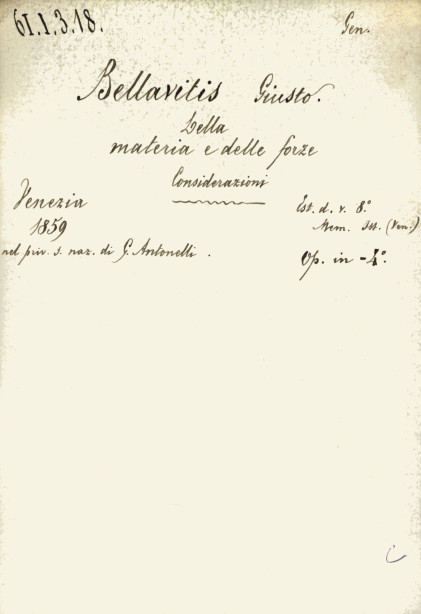 61.1.3.18.
Gen.
Bellavitis Giusto.
Della
materia e delle forze
Considerazioni
Venezia
1859
nel priv. s. naz. di G. Antonelli.
Est. d. v. 8.°
Mem. Ist. (Ven.)
Op. in -4.°